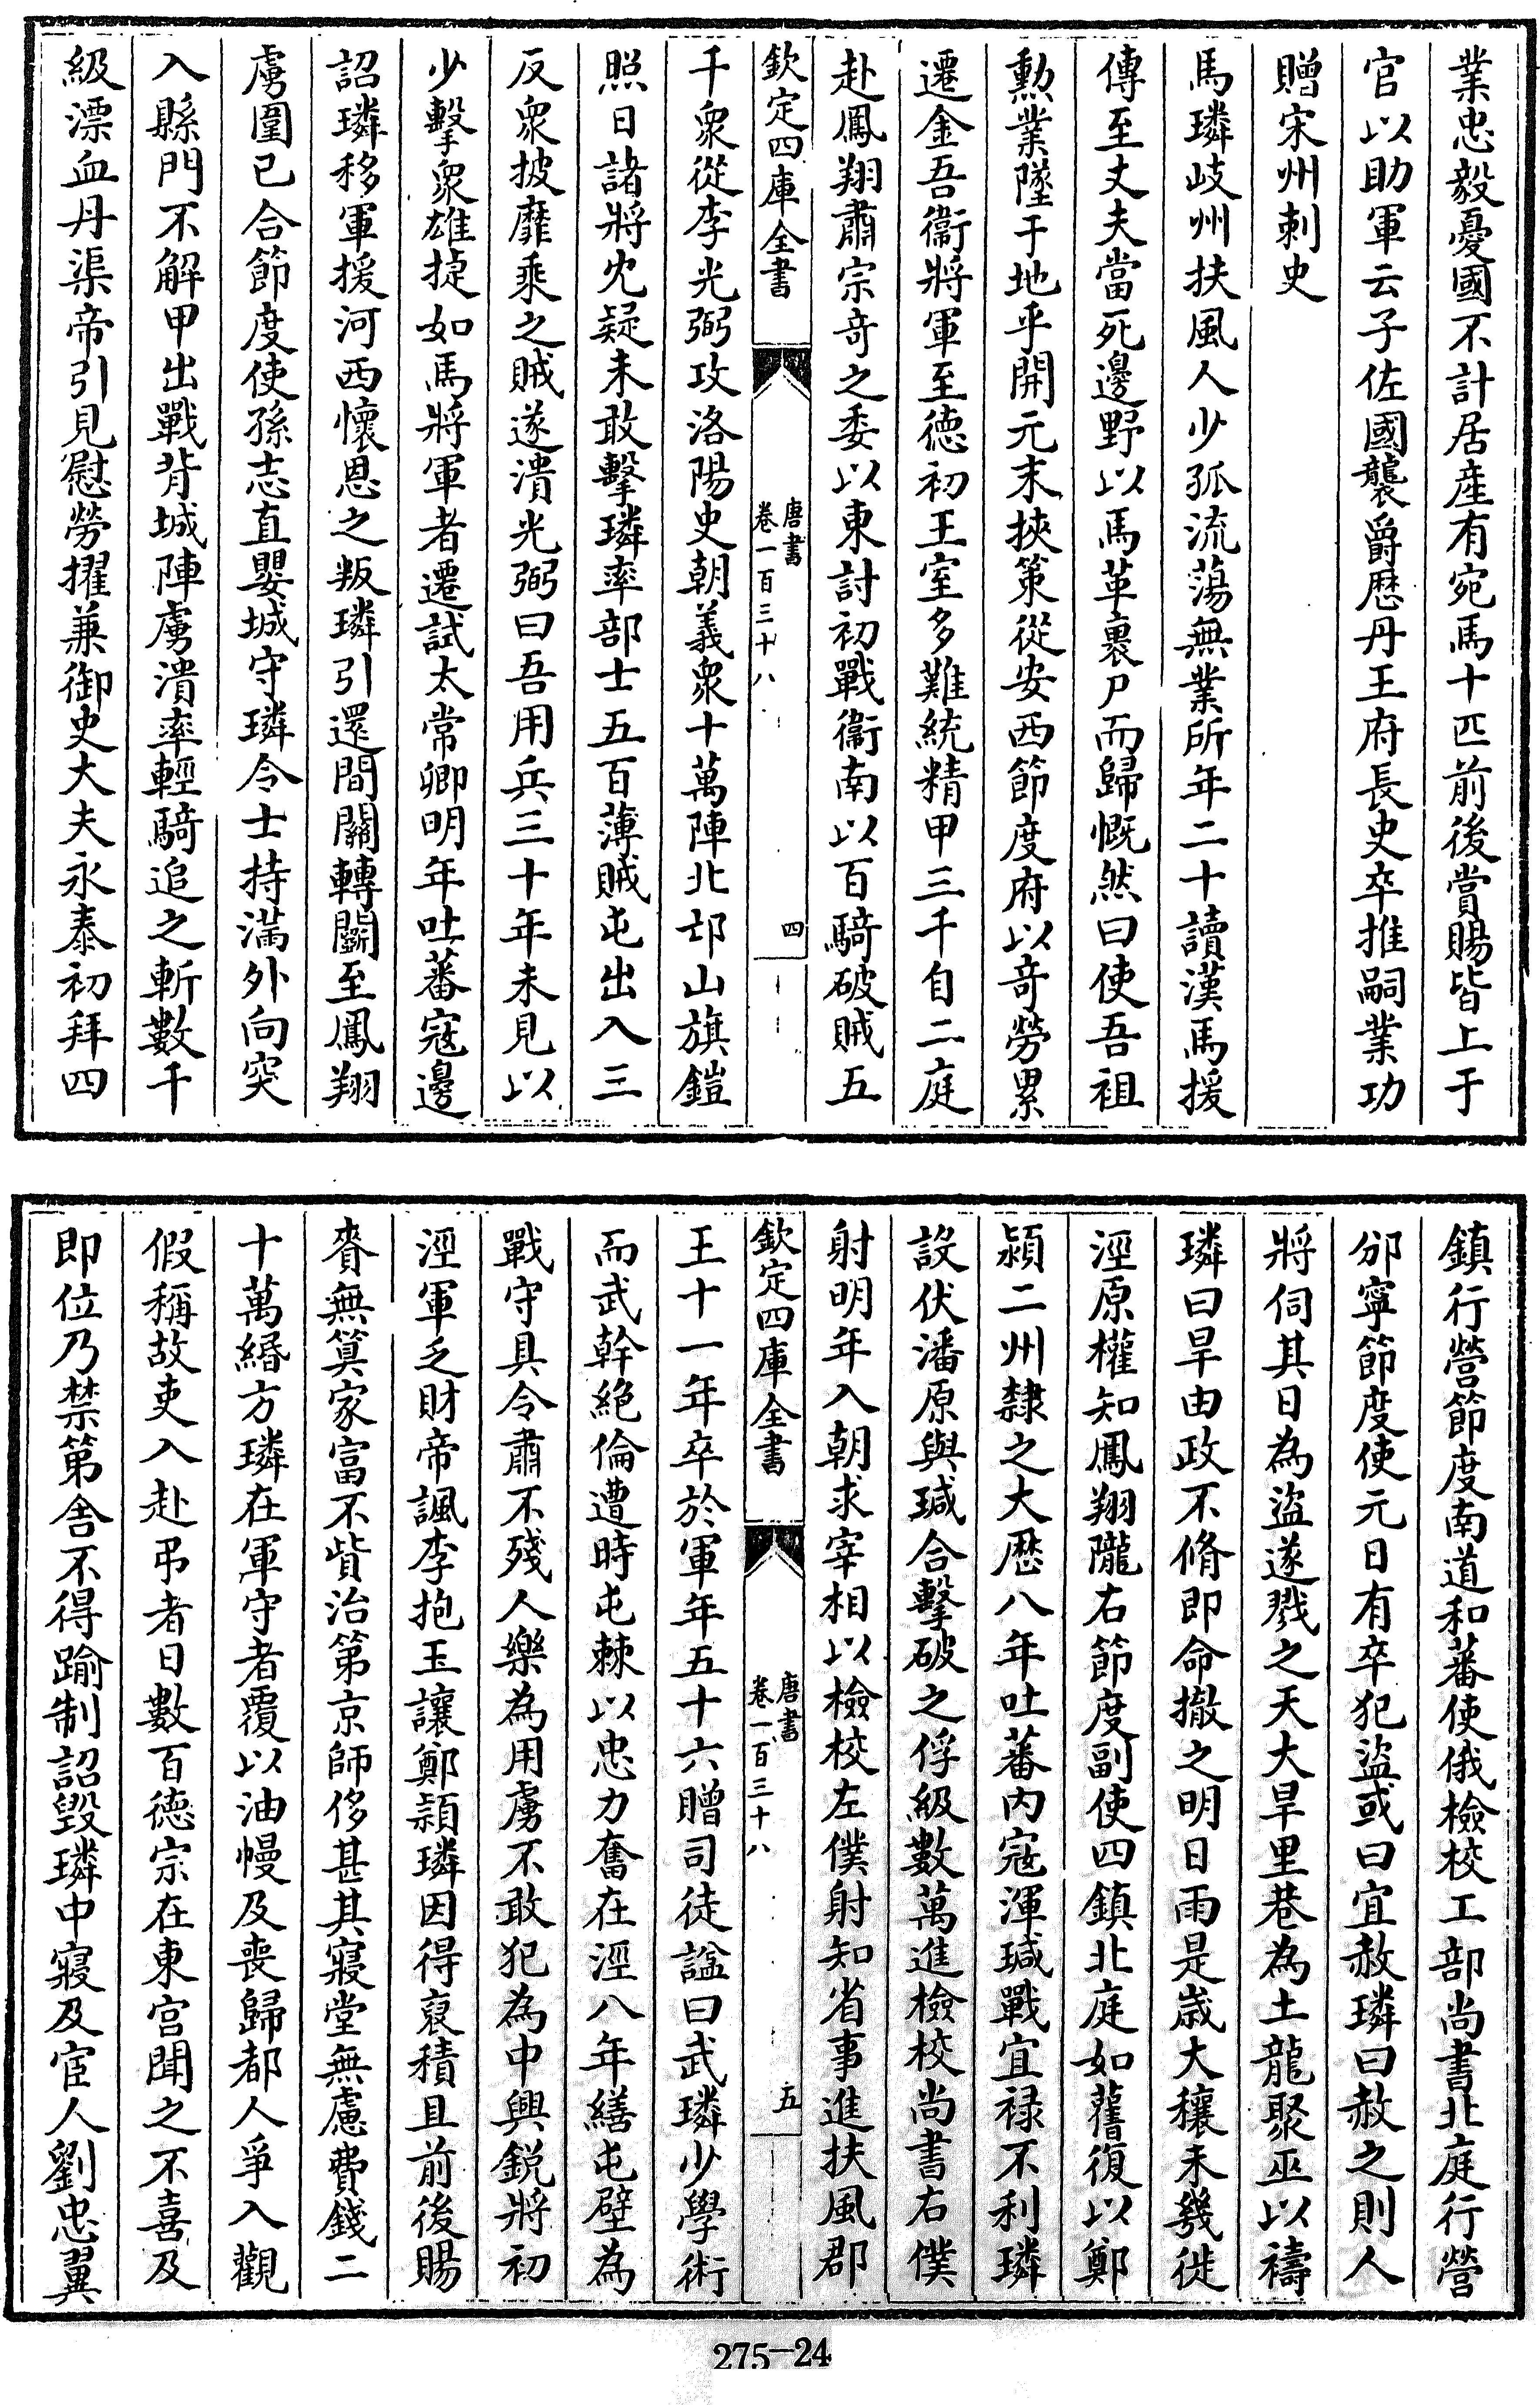 業忠毅憂國不計居産有宛馬十匹前後賞賜皆上于
官以助軍云子佐國襲爵歴丹王府長史卒推嗣業功
贈宋州刺史
馬璘岐州扶風人少孤流蕩無業所年二十讀漢馬援
傳至丈夫當死邊野以馬革裹尸而歸慨然曰使吾祖
勲業墜于地乎開元末挾策從安西節度府以奇勞累
遷金吾衞將軍至德初王室多難統精甲三千自二庭
赴鳳翔肅宗奇之委以東討初戰衞南以百騎破賊五
欽定四庫全書
唐書
卷一百三十八
四
千衆從李光弼攻洛陽史朝義衆十萬陣北邙山旗鎧
照日諸將冘疑未敢擊璘率部士五百薄賊屯出入三
反衆披靡乘之賊遂潰光弼曰吾用兵三十年未見以
少擊衆雄捷如馬將軍者遷試太常卿明年吐蕃寇邊
詔璘移軍援河西懷恩之叛璘引還間關轉鬭至鳳翔
虜圍已合節度使孫志直嬰城守璘令士持滿外向突
入縣門不解甲出戰背城陣虜潰率輕騎追之斬數千
級漂血丹渠帝引見慰勞擢兼御史大夫永泰初拜四
鎮行營節度南道和蕃使俄檢校工部尚書北庭行營
邠寧節度使元日有卒犯盜或曰宜赦璘曰赦之則人
將伺其日為盜遂戮之天大旱里巷為土龍聚巫以禱
璘曰旱由政不脩即命撤之明日雨是歲大穰未幾徙
涇原權知鳳翔隴右節度副使四鎮北庭如舊復以鄭
潁二州隸之大歴八年吐蕃内寇渾瑊戰宜禄不利璘
設伏潘原與瑊合擊破之俘級數萬進檢校尚書右僕
射明年入朝求宰相以檢校左僕射知省事進扶風郡
欽定四庫全書
唐書
卷一百三十八
五
王十一年卒於軍年五十六贈司徒諡曰武璘少學術
而武幹絶倫遭時屯棘以忠力奮在涇八年繕屯壁為
戰守具令肅不殘人樂為用虜不敢犯為中興鋭將初
涇軍乏財帝諷李抱玉讓鄭潁璘因得裒積且前後賜
賚無筭家富不貲治第京師侈甚其寢堂無慮費錢二
十萬緡方璘在軍守者覆以油幔及喪歸都人爭入觀
假稱故吏入赴弔者日數百德宗在東宮聞之不喜及
即位乃禁第舍不得踰制詔毀璘中寢及宦人劉忠翼
275-24